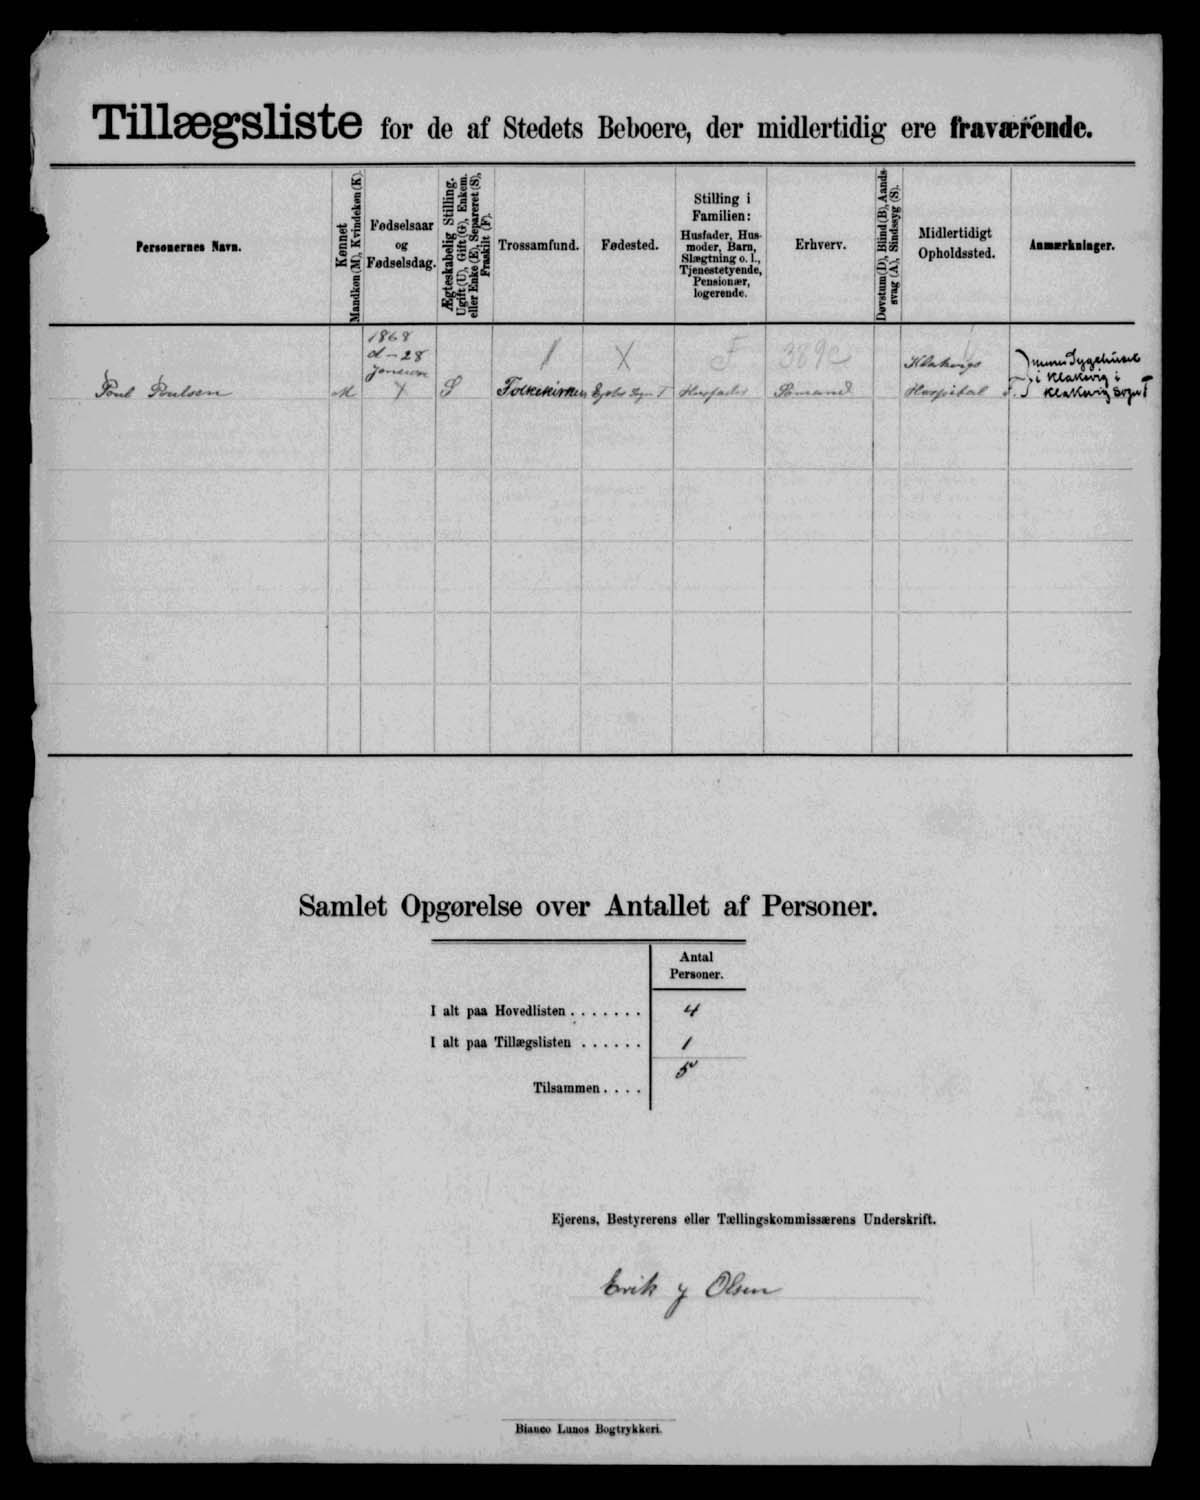 Tillægsliste for de af Stedets Beboere, der midlertidig ere fraværende.
Personernes Navn.
Kønnet
Mandkøn (M), Kvindekøn (K).
Fødselsaar
og
Fødselsdag.
Ægteskabelig Stilling.
Ugift (U), Gift (G), Enkem.
eller Enke (E), Separeret (S),
Fraskilt (F).
Trossamfund.
Fødested.
Stilling i
Familien:
Husfader, Hus-
moder, Barn,
Slægtning o. l.,
Tjenestetyende,
Pensionær,
logerende.
Erhverv.
Døvstum (D), Blind (B), Aands-
svag (A), Sindssyg (S).
Midlertidigt
Opholdssted.
Anmærkninger.
Poul Poulsen
M
1868
d - 28
S
Folkekirken
Sogn
Husfader
F
389c
Sømand
Klaksvigs
Hospital
Sygehuset
i Klaksvig i
Klaksvig Sogn
Samlet Opgørelse over Antallet af Personer.
Antal
Personer.
I alt paa Hovedlisten . . . . . . . 4
I alt paa Tillægslisten . . . . . . 1
Tilsammen . . . . 5
Ejerens, Bestyrerens eller Tællingskommissærens Underskrift.
Erik J Olsen
Bianco Lunos Bogtrykkeri.